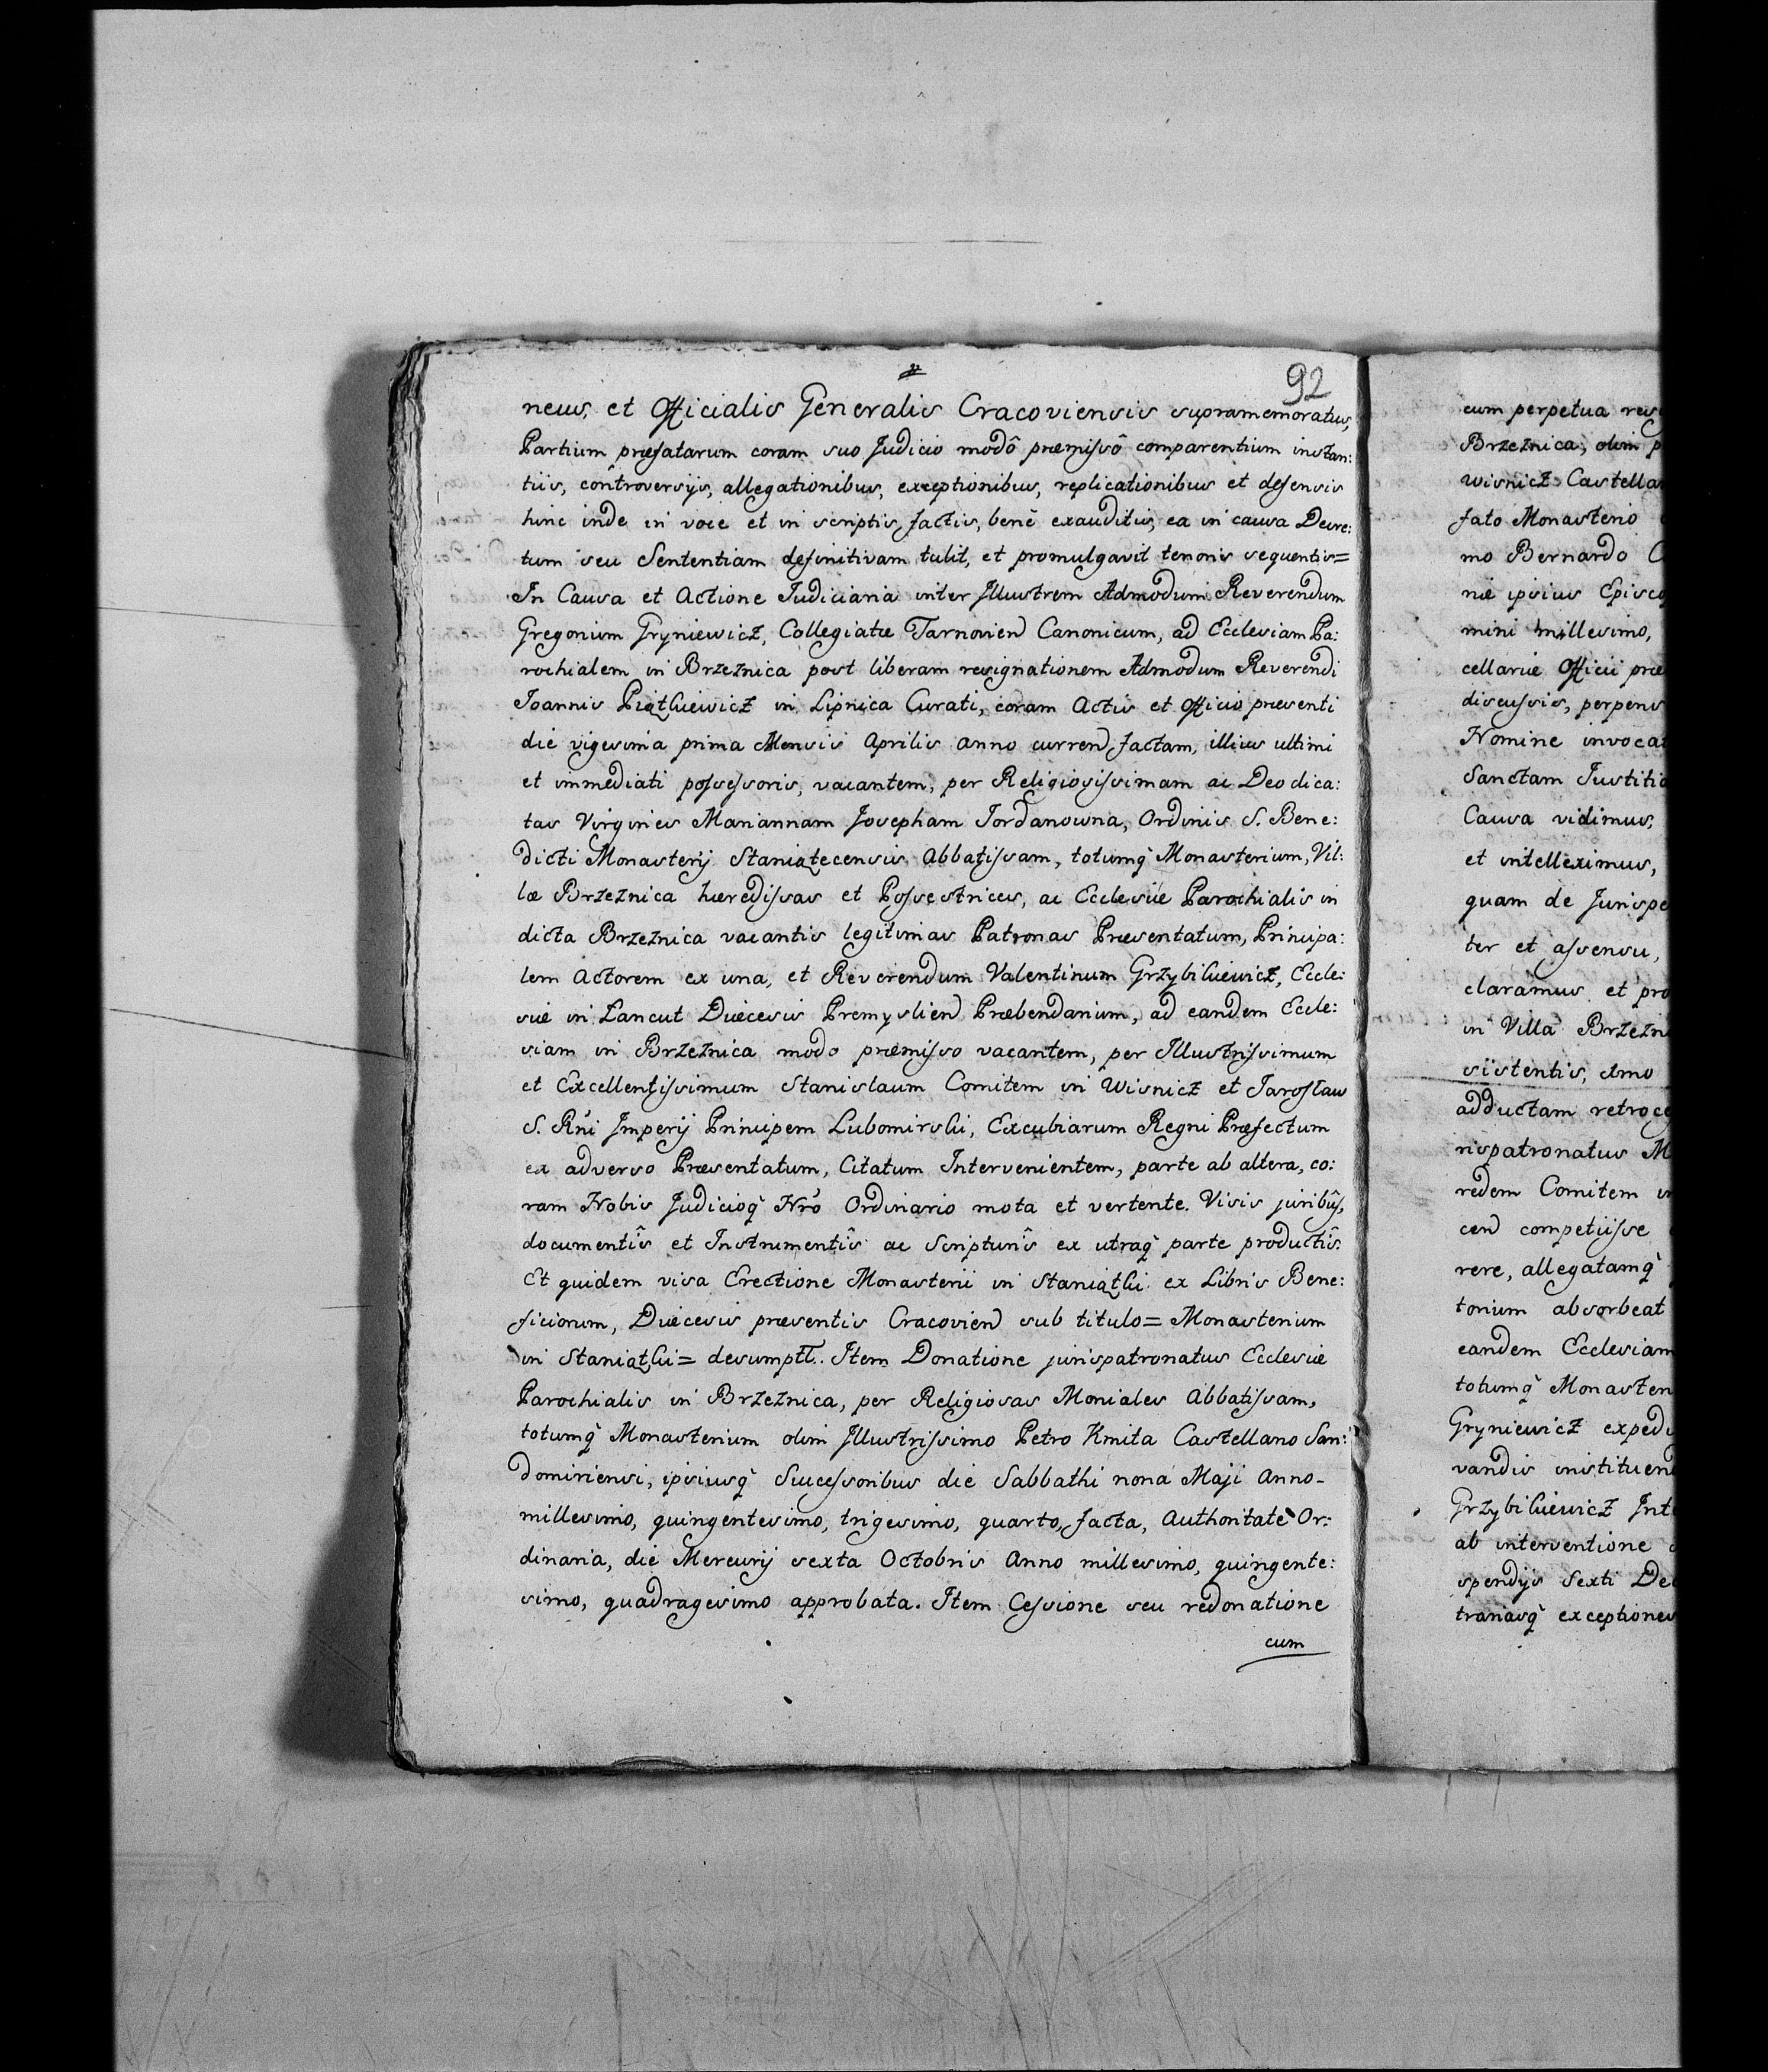 92
neus, et Officialis Generalis Cracoviensis supramemoratus,
Partium præfatarum coram suo Judicio modô præmissô comparentium instan:
tiis, controversijs, allegationibus, exceptionibus, replicationibus et defensis
hinc inde in voce et in scriptis factis, benè exauditis, ea in causa Decre:
tum seu Sententiam definitivam tulit, et promulgavit tenoris sequentis=
In Causa et Actione Judiciaria inter Illustrem Admodum Reverendum
Gregorium Gryniewicz, Collegiatæ Tarnovien Canonicum, ad Ecclesiam Pa:
rochialem in Brzeznica post liberam resignationem Admodum Reverendi
Joannis Piątkiewicz in Lipnica Curati, coram Actis et Officio præsenti
die vigesima prima Mensis Aprilis anno curren factam, illius ultimi
et immediati possessoris, vacantem, per Religiosissimam ac Deo dica:
tas Virgines Mariannam Josepham Jordanowna, Ordinis S. Bene:
dicti Monasterij Staniątecensis Abbatissam, totumq̀ Monasterium, Vil:
læ Brzeznica hæredissas et Possestrices, ac Ecclesiæ Parochialis in
dicta Brzeznica vacantis legitimas Patronas Præsentatum, Principa:
lem Actorem ex una, et Reverendum Valentinum Grzybikiewicz, Eccle:
siæ in Łancut Diæcesis Premyslien Præbendarium, ad eandem Eccle:
siam in Brzeznica modo præmisso vacantem, per Illustrissimum
et Excellentissimum Stanislaum Comitem in Wisnicz et Jarosław
S. Rńi Imperij Principem Lubomirski, Excubiarum Regni Præfectum
ex adverso Præsentatum, Citatum Intervenientem, parte ab altera, co:
ram Nobis Judicioq̀ Nró Ordinario mota et vertente. Visis juribûs,
documentîs et Instrumentîs ac Scripturîs ex utraq̀ parte productîs.
Et quidem visa Erectione Monasterii in Staniątki ex Libris Bene:
ficiorum, Diæcesis præsentis Cracovien sub titulo= Monasterium
in Staniątki= desumptt. Item Donatione jurispatronatus Ecclesiæ
Parochialis in Brzeznica, per Religiosas Moniales Abbatissam,
totumq̀ Monasterium olim Illustrissimo Petro Kmita Castellano San:
domiriensi, ipsiusq̀ Successoribus die Sabbathi nona Maji Anno-
millesimo, quingentesimo, trigesimo, quarto, facta, Authoritate Or:
dinaria, die Mercurij sexta Octobris Anno millesimo, quingente:
simo, quadragesimo approbata. Item Cessione seu redonatione
cum
cum perpetua
Brzeznica, olim
wisnicz Castella
fato Monasterio
mo Bernardo
niæ ipsius Episco
mini millesimo,
cellariæ Officii præ
discussis, perpens
Nomine invoca
Sanctam Justitia
Causa vidimus,
et intelleximus,
quam de Jurispe
ter et assensu,
claramus et pro
in Villa Brzezn
sistentis, Amo
adductam retroce
rispatronatus M
redem Comitem in
cen competiisse
rere, allegatamq̀
torium absorbeat
eandem Ecclesiam
totumq̀ Monaster
Gryniewicz expedi
vandis instituen
Grzybikiewicz Int
ab interventione
spendijs Sexti De
trariasq̀ exceptiones